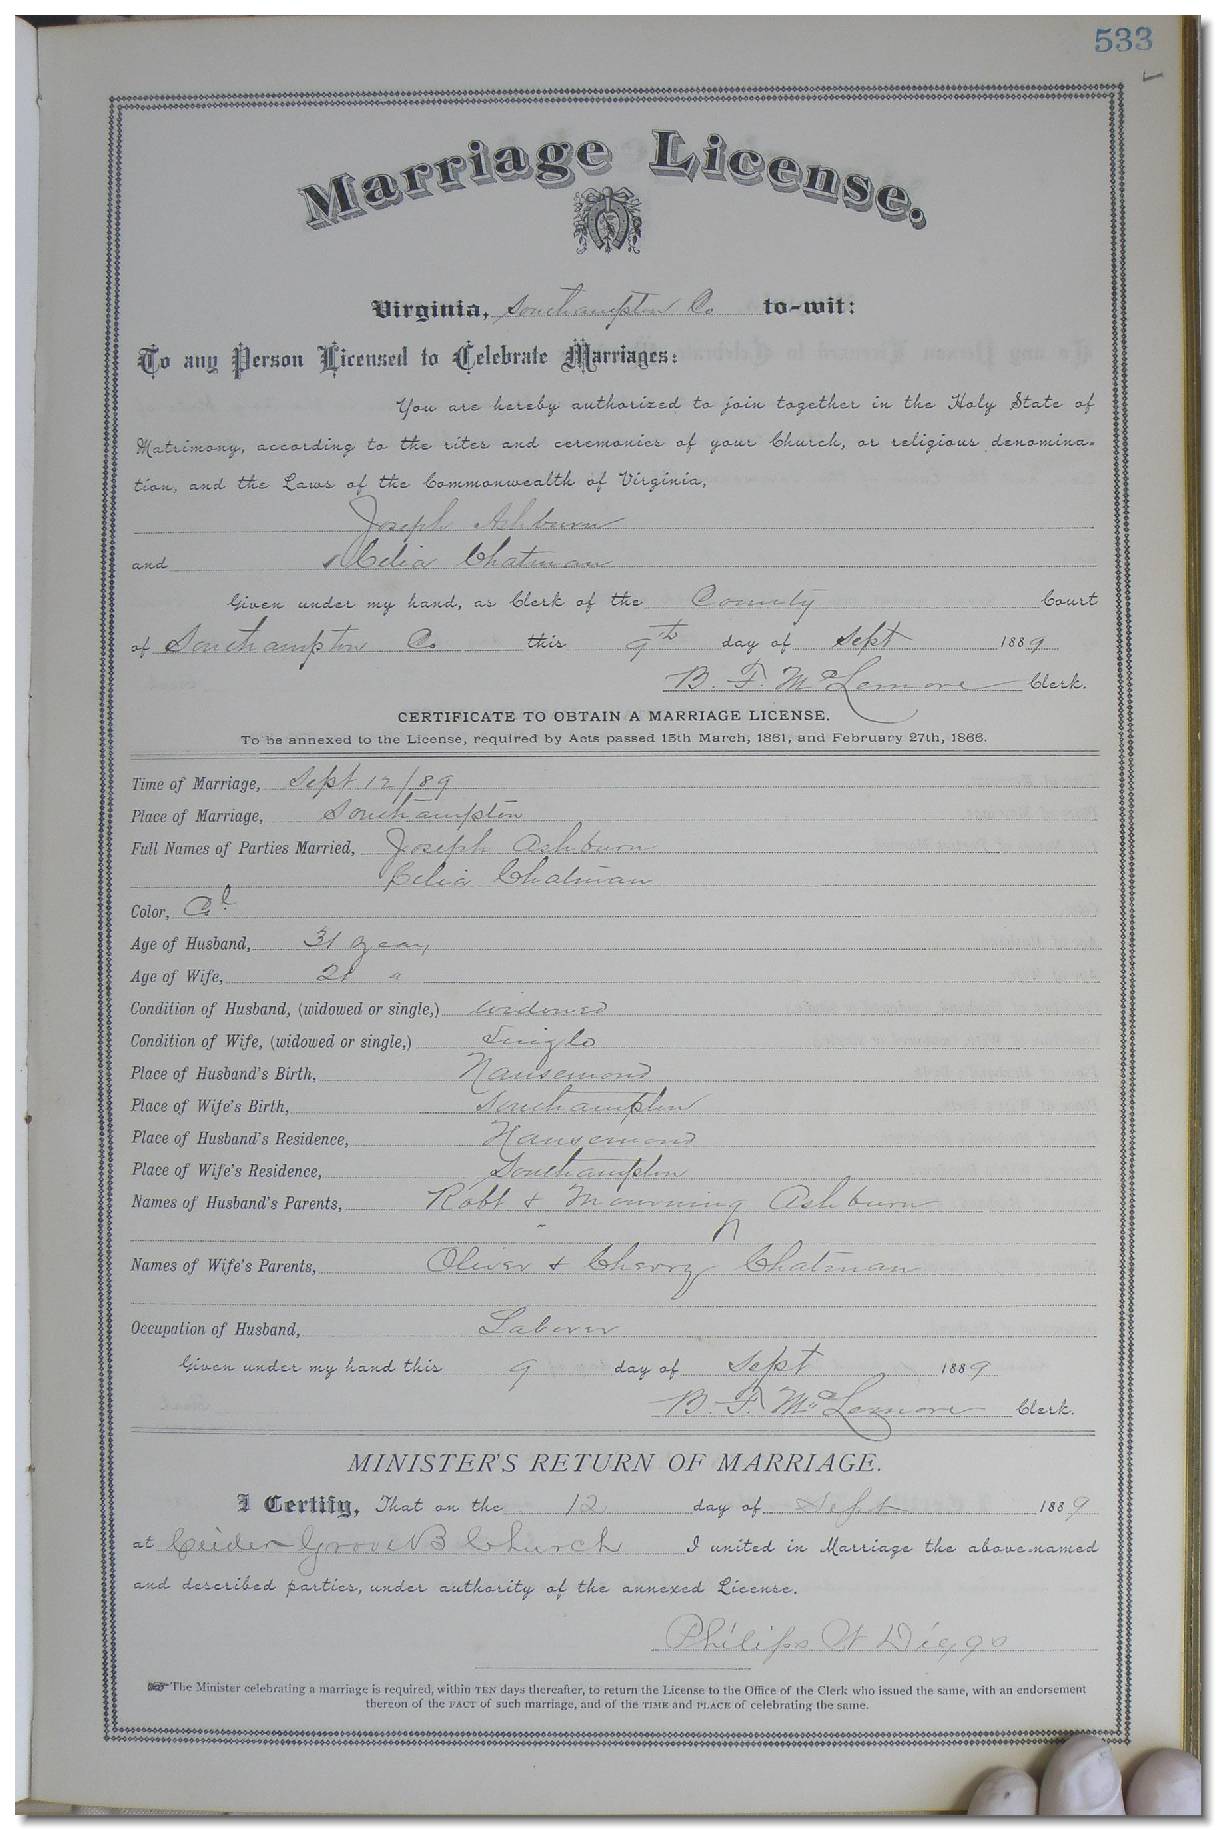 533
Marriage License.
Virginia, Southampton Co to-wit:
To any Person Licensed to Celebrate Marriages:
You are hereby authorized to join together in the Holy State of
Matrimony, according to the rites and ceremonies of your Church, or religious denomina-
tion, and the Laws of the Commonwealth of Virginia,
Joseph Ashburn
and Celia Chatman
Given under my hand, as Clerk of the County Court
of Southampton Co this 9th day of Sept 1889
B. F. McLemore Clerk.
CERTIFICATE TO OBTAIN A MARRIAGE LICENSE.
To be annexed to the License, required by Acts passed 15th March, 1861, and February 27th, 1866.
Time of Marriage, Sept 12/89
Place of Marriage, Southampton
Full Names of Parties Married, Joseph Ashburn
Celia Chatman
Color, Cd
Age of Husband, 31 years
Age of Wife, 21 "
Condition of Husband, (widowed or single,) widowed
Condition of Wife, (widowed or single,) Single
Place of Husband's Birth, Nansemond
Place of Wife's Birth, Southampton
Place of Husband's Residence, Nansemond
Place of Wife's Residence, Southampton
Names of Husband's Parents, Robt & Mourning Ashburn
Names of Wife's Parents, Oliver & Cherry Chatman
Occupation of Husband, Laborer
Given under my hand this 9 day of Sept 1889
B. F. McLemore Clerk.
MINISTER'S RETURN OF MARRIAGE.
I Certify, That on the 12 day of Sept 1889
at Grove B Church I united in Marriage the above-named
and described parties, under authority of the annexed License.
Philips W Diggs
The Minister celebrating a marriage is required, within TEN days thereafter, to return the License to the Office of the Clerk who issued the same, with an endorsement
thereon of the FACT of such marriage, and of the TIME and PLACE of celebrating the same.